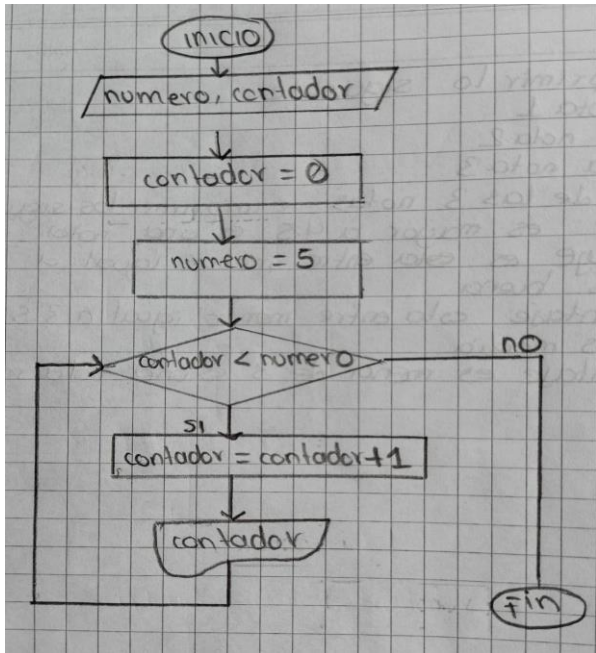 inicio
numero, contador
contador = 0
numero = 5
contador < numero
no
si
contador = contador+1
contador
Fin